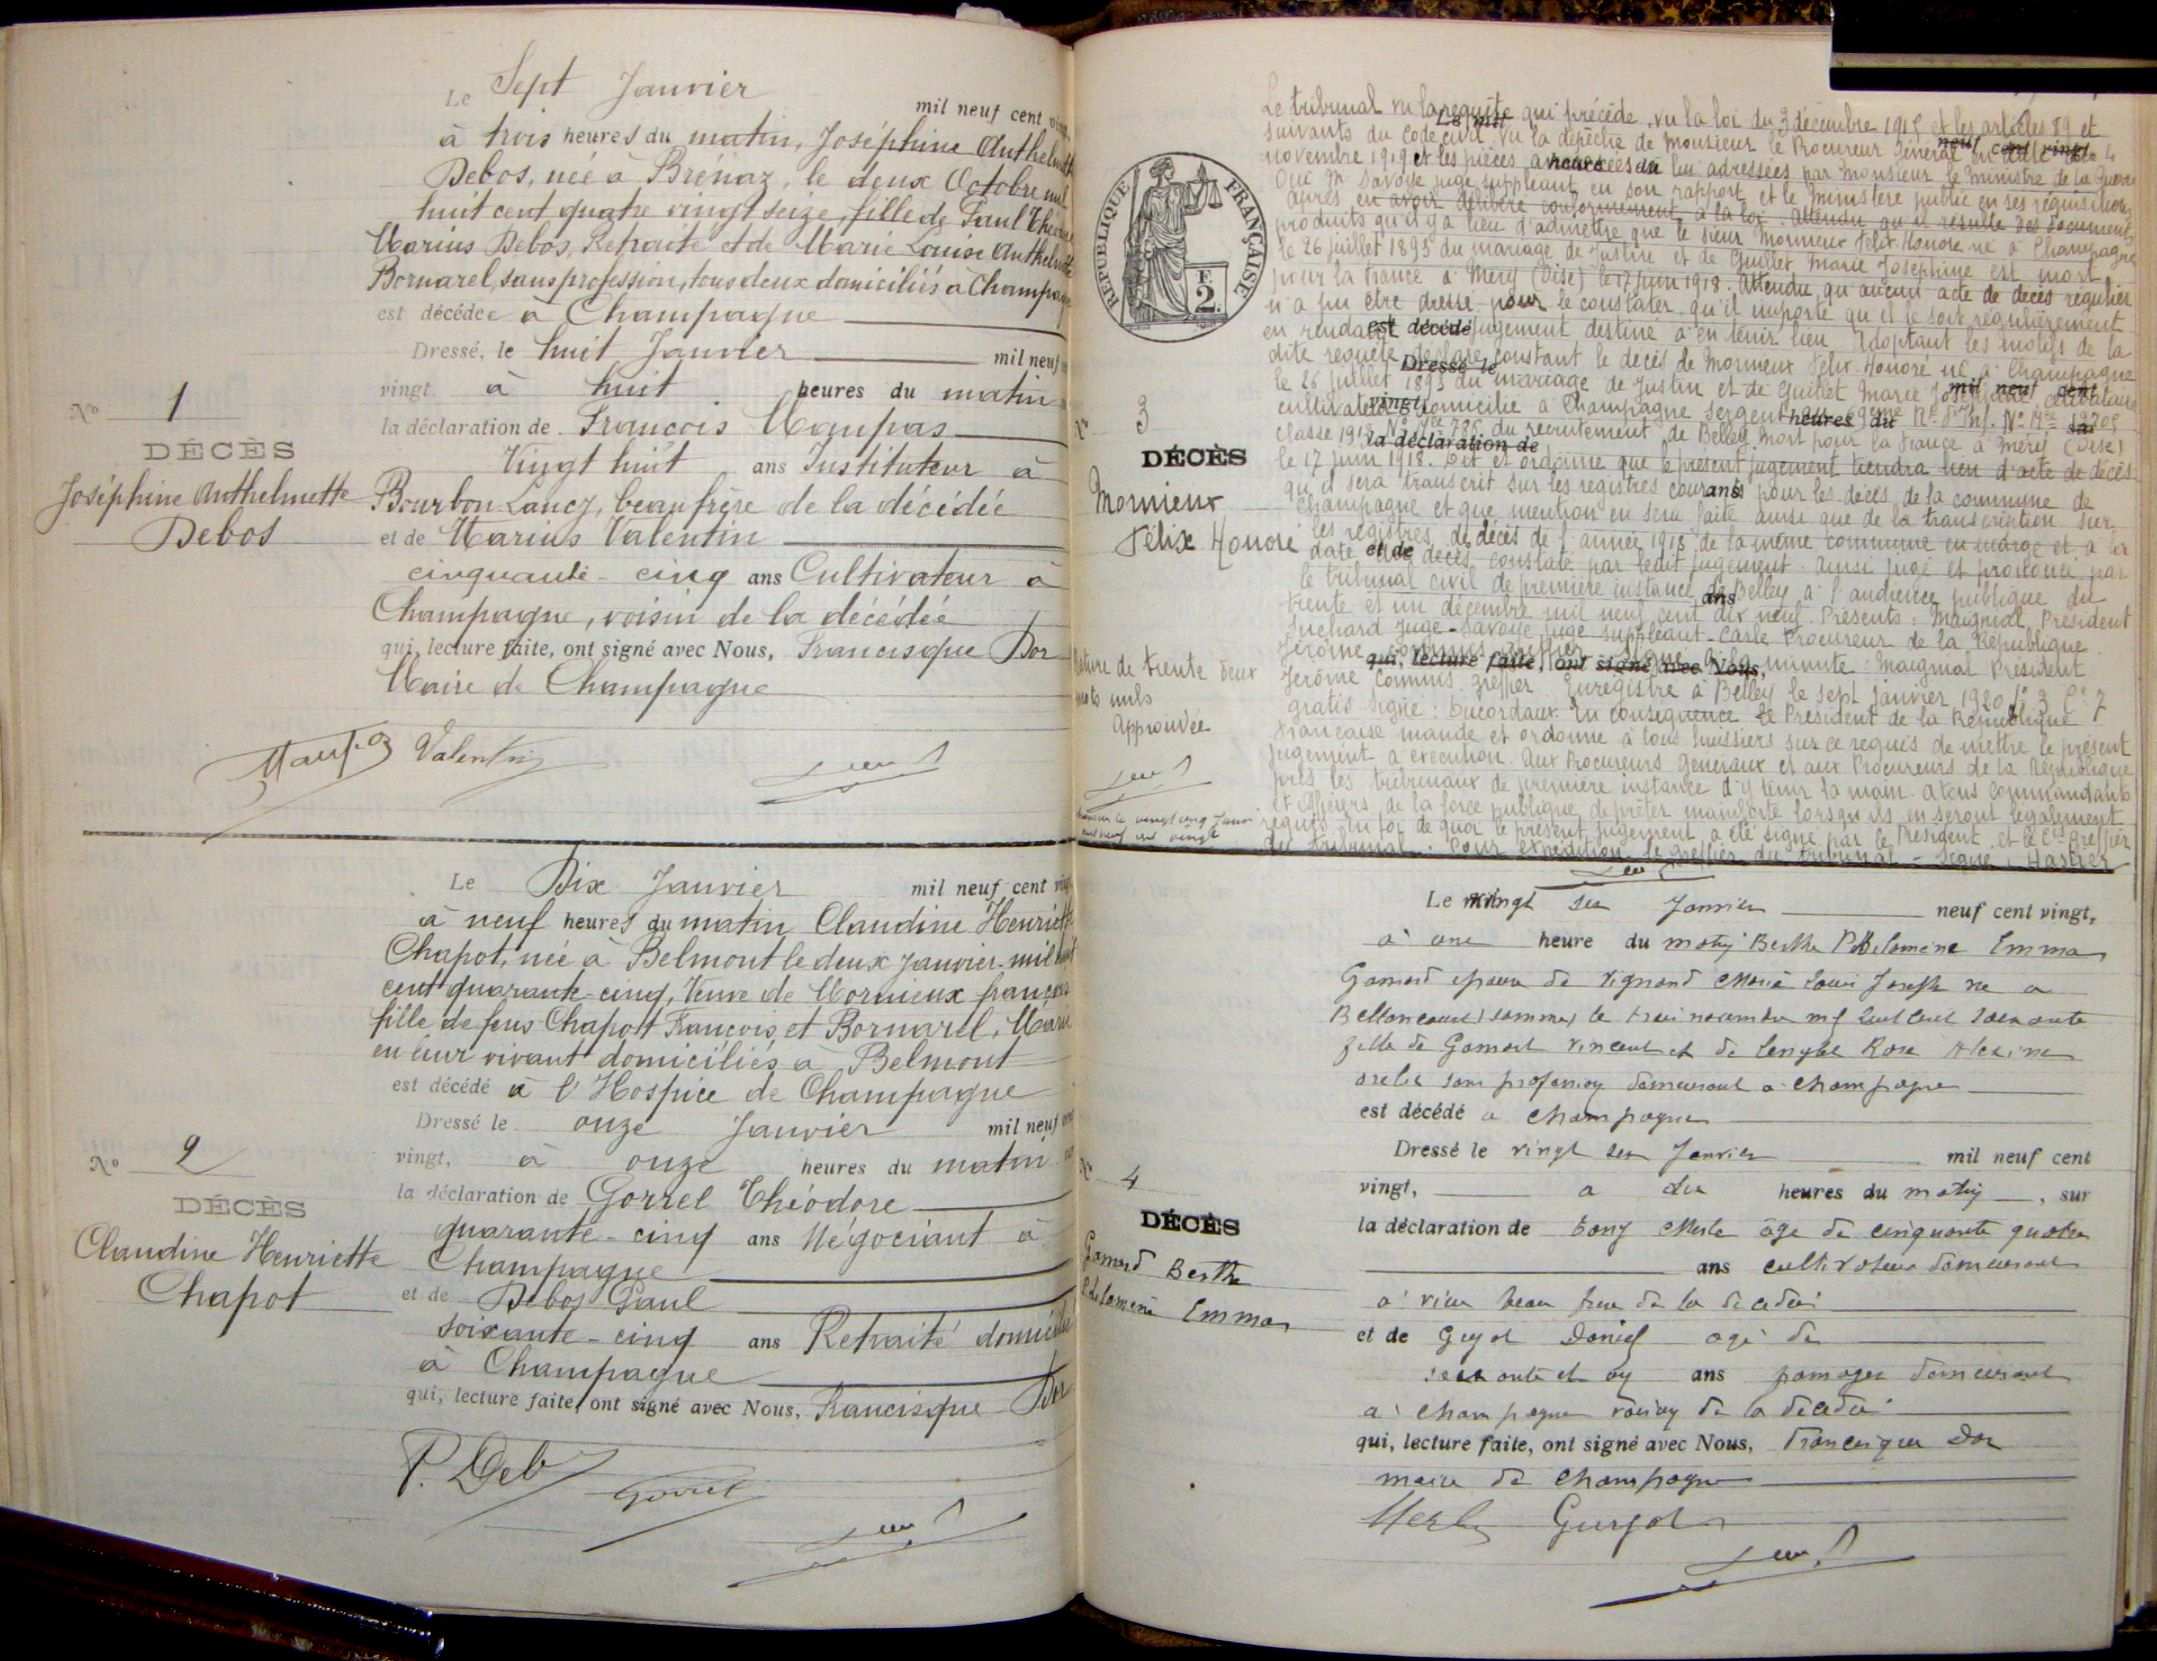 Le Sept Janvier mil neuf cent vingt,
à trois heures du matin, Joséphine Anthelmette
Debos, née à Brénaz, le deux Octobre mil
huit cent quatre vingt seize, fille de Paul
Marius Debos, Retraité et de Marie Louise Anthelmette
Bornarel, sans profession, tous deux domiciliés à Champagne
est décédée à Champagne
Dressé, le huit Janvier mil neuf
vingt à huit heures du matin
la déclaration de François Maupas
Vingt huit ans Instituteur à
Bourbon-Lancy, beau frère de la décédée
et de Marius Valentin
cinquante-cinq ans Cultivateur à
Champagne, voisin de la décédée
qui, lecture faite, ont signé avec Nous, Francisque Dor
Maire de Champagne
Maupas Valentin
No 1
DÉCÈS
Joséphine Anthelmette
Debos
Le Dix Janvier mil neuf cent vingt
à neuf heures du matin Claudine Henriette
Chapot, née à Belmont le deux Janvier mil huit
cent quarante-cinq, Veuve de Mornieux françois
fille de feus Chapot François et Bornarel, Marie
en leur vivant domiciliés à Belmont
est décédé à l'Hospice de Champagne
Dressé le onze Janvier mil neuf cent
vingt, à onze heures du matin
la déclaration de Gorrel Théodore
quarante-cinq ans Négociant à
Champagne
et de Debos Paul
soixante-cinq ans Retraité domicilié
à Champagne
qui, lecture faite, ont signé avec Nous, Francisque Dor
P. Deb Gorrel
No 2
DÉCÈS
Claudine Henriette
Chapot
RÉPUBLIQUE FRANÇAISE
2F.
Le tribunal vu la requête qui précède, vu la loi du 3 décembre 1915 et les articles 89 et
suivants du code civil vu la dépêche de Monsieur le Procureur Général en date du 4
novembre 1919 et les pièces annexées à lui adressées par Monsieur le Ministre de la Guerre
Ouï Mr Savoye juge suppléant en son rapport et le Ministère public en ses réquisitions
après en avoir délibéré conformément à la loi. Attendu qu'il résulte des documents
produits qu'il y a lieu d'admettre que le sieur Mornieux Félix Honoré né à Champagne
le 26 juillet 1893 du mariage de Justin et de Guillet Marie Joséphine est mort
pour la France à Méry (Oise) le 17 juin 1918. Attendu qu'aucun acte de décès régulier
n'a pu être dressé pour le constater, qu'il importe qu'il le soit régulièrement
en rendant jugement destiné à en tenir lieu. Adoptant les motifs de la
dite requête déclare constant le décès de Mornieux Félix Honoré né à Champagne
le 26 juillet 1893 du mariage de Justin et de Guillet Marie Joséphine célibataire
cultivateur domicilié à Champagne Sergent au
classe 1913 No du recrutement de Belley mort pour la France à Méry (Oise)
le 17 juin 1918. Dit et ordonne que le présent jugement tiendra lieu d'acte de décès
qu'il sera transcrit sur les registres courants pour les décès de la commune de
Champagne et que mention en sera faite ainsi que de la transcription sur
les registres de décès de l'année 1918 de la même commune en marge et à la
date du décès constaté par ledit jugement. Ainsi jugé et prononcé par
le tribunal civil de première instance de Belley à l'audience publique du
trente et un décembre mil neuf cent dix neuf. Présents: Maignial, Président
Suchard Juge - Savoye juge suppléant - Carle Procureur de la République
Jérôme commis greffier. Signé à la minute: Maignial Président
Jérôme commis greffier. Enregistré à Belley le sept janvier 1920 fo 3 Co 7
gratis signé: Ducordaux. En conséquence le Président de la République
française mande et ordonne à tous huissiers sur ce requis de mettre le présent
jugement à exécution. Aux Procureurs Généraux et aux Procureurs de la République
près les tribunaux de première instance d'y tenir la main. A tous commandants
et Officiers de la force publique de prêter mainforte lorsqu'ils en seront légalement
requis. En foi de quoi le présent jugement a été signé par le Président et le Cis Greffier
du tribunal. Pour expédition le greffier du tribunal - Signé: Hastier
No 3
DÉCÈS
Mornieux
Félix Honoré
Rature de trente deux
mots nuls
Approuvée
Le vingt six Janvier neuf cent vingt,
à une heure du matin Berthe Philomène Emma
Gamard épouse de Vignand Marie Louis Joseph né à
Belloncourt (Somme) le trois novembre mil huit cent soixante
fille de Gamard Vincent et de Lenglet Rose Alexine
sans profession demeurant à Champagne
est décédé à Champagne
Dressé le vingt six Janvier mil neuf cent
vingt, à dix heures du matin, sur
la déclaration de Tony Merle âgé de cinquante quatre
ans cultivateur demeurant
à Vieu beau frère de la décédée
et de Guyot Daniel âgé de
soixante et un ans demeurant
à Champagne voisin de la décédée
qui, lecture faite, ont signé avec Nous, Francisque Dor
maire de Champagne
Merle Guyot
No 4
DÉCÈS
Gamard Berthe
Philomène Emma